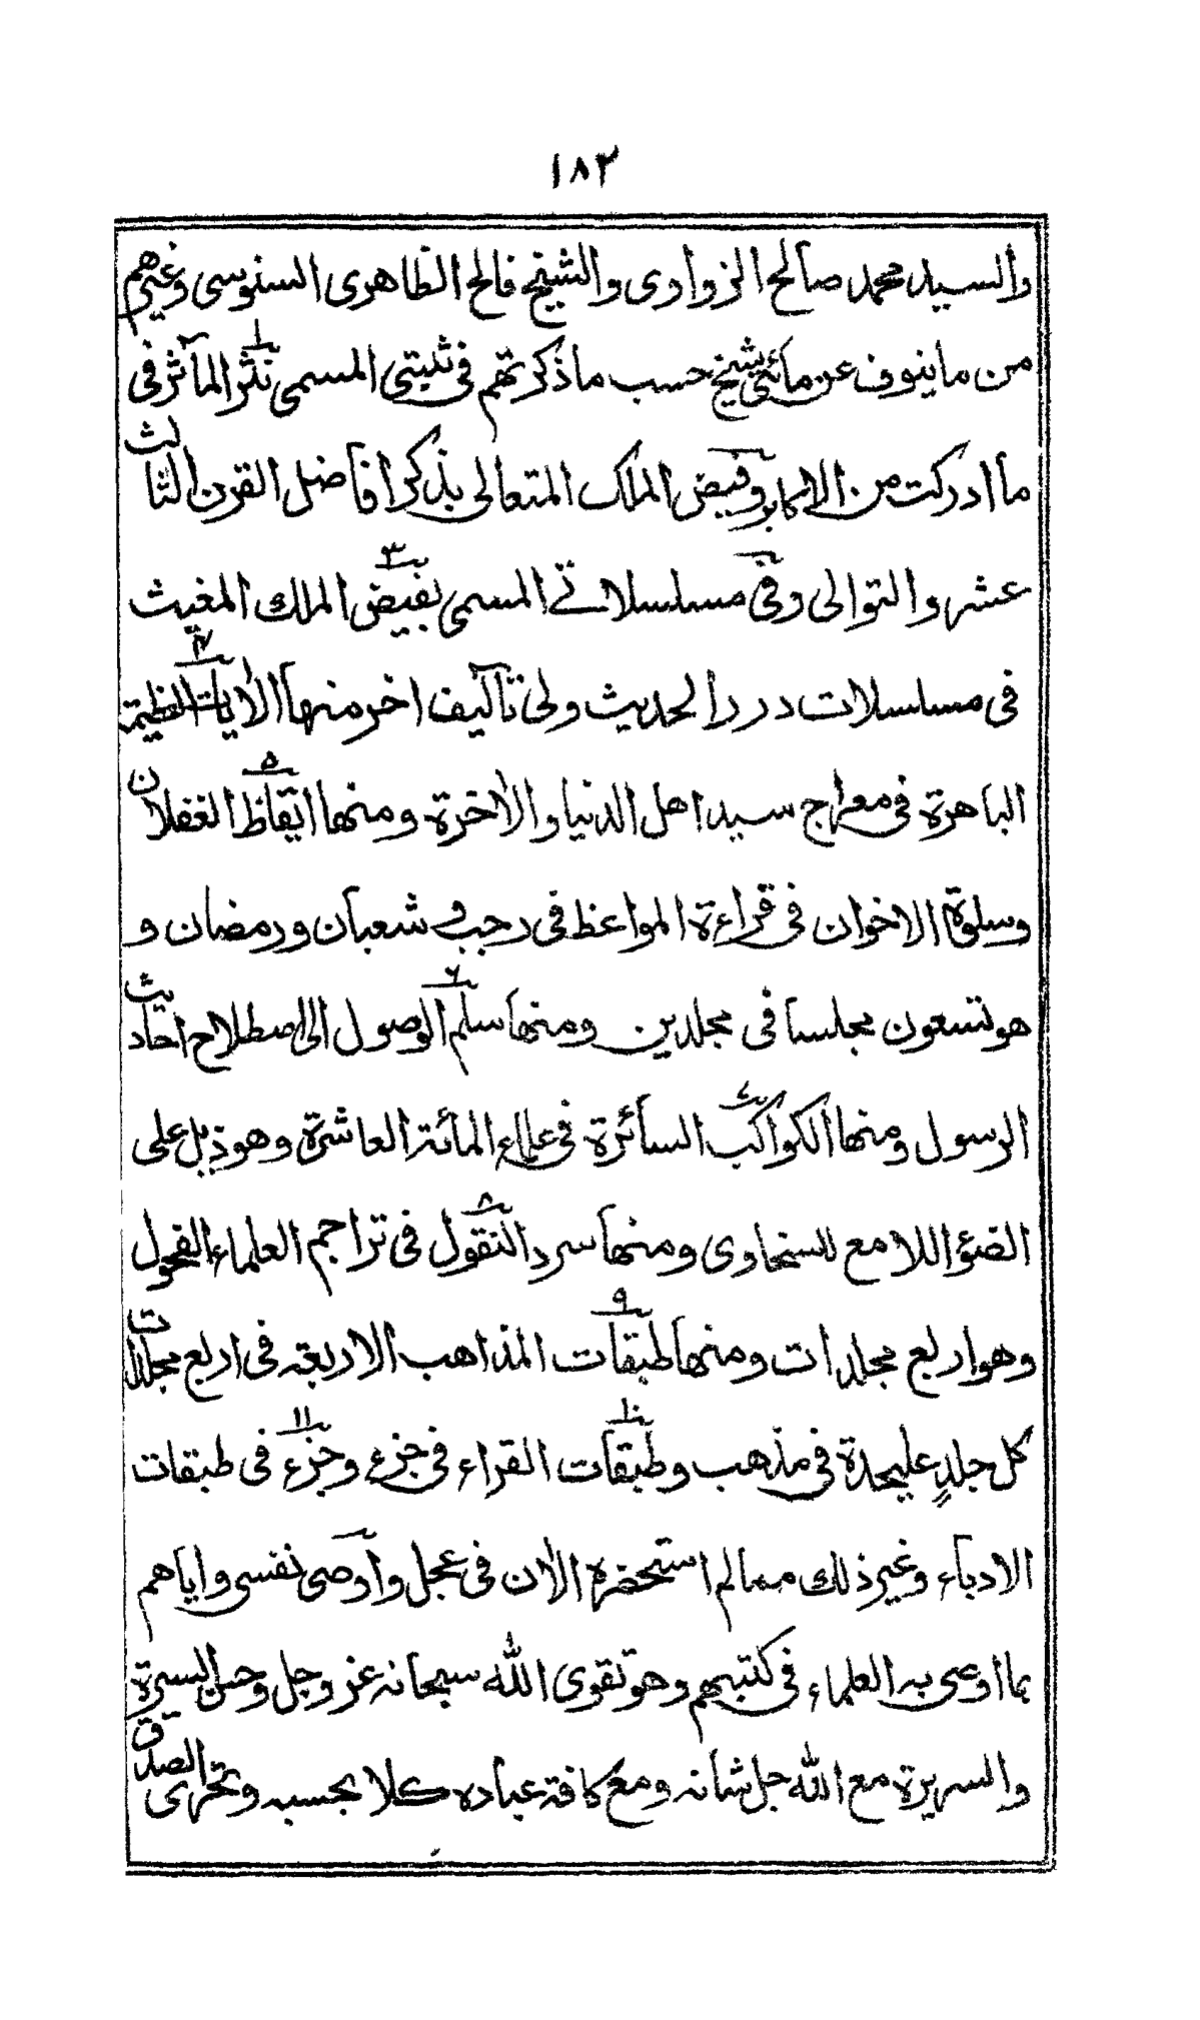 ١٨٣
والسيد محمد صالح الزواوى والشيخ فالح الظاهرى السنوسى وغيرهم
من ما ينوف عن مائتى شيخ حسب ما ذكرتهم فى ثبتى المسمى نثر المآثر فى
ما ادركت من الاكابر وفيض الملك المتعالى بذكر افاضل القرن الثالث
عشر والتوالى وفى مسلسلاتى المسمى بفيض الملك المغيث
فى مسلسلات درر الحديث ولى تآليف اخر منها الايات العظيمة
الباهرة فى معراج سيد اهل الدنيا والاخرة ومنها ايقاظ الغفلان
وسلوة الاخوان فى قراءة المواعظ فى رجب و شعبان ورمضان و
هو تسعون مجلسا فى مجلدين ومنها سلم الوصول الى اصطلاح احاديث
الرسول ومنها الكواكب السائرة فى علماء المائة العاشرة وهو ذيل على
الضوء اللامع للسخاوى ومنها سرد النقول فى تراجم العلماء الفحول
وهو اربع مجلدات ومنها طبقات المذاهب الاربعة فى اربع مجلدات
كل جلدٍ عليحدة فى مذهب وطبقات القراء فى جزء وجزء فى طبقات
الادباء وغير ذلك مما لم استحضره الان فى عجل وآوصى نفسى واياهم
بما اوصى به العلماء فى كتبهم وهو تقوى الله سبحانه عز وجل وحسن السيرة
والسريرة مع الله جل شانه ومع كافة عباده كلا بحسبه وتحرى الصدق
١
٢
٣
٤
٥
٦
٧
٨
٩
١٠
١١